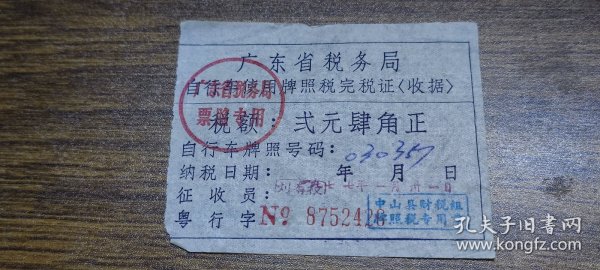 广东省税务局
自行车使用牌照税完税证〈收据〉
广东省税务局
票证专用
税额：弍元肆角正
自行车牌照号码：030357
纳税日期： 年 月 日
征收员：
粤行字 № 8752426
中山县财税组
行照税专用
孔夫子旧书网
www.kongfz.com